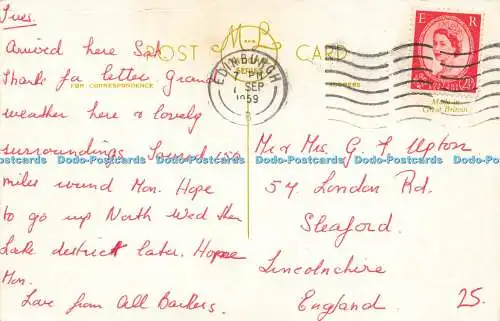 Tues.
Arrived here Sat.
Thanks for letter. Grand
weather here & lovely
surroundings. Toured 150
miles round Mon. Hope
to go up North Wed then
Lake district later. Home
Mon.
Love from All Barkers.
POST M B CARD
SERIES
FOR CORRESPONDENCE
ADDRESS
EDINBURGH
7 SEP
1959
8
E R
2½D
Made in
Great Britain
Mr and Mrs. G. F Upton
54 London Rd.
Sleaford.
Lincolnshire
England.
25.
Dodo-Postcards Dodo-Postcards Dodo-Postcards Dodo-Postcards Dodo-Postcards Dodo-Postcards